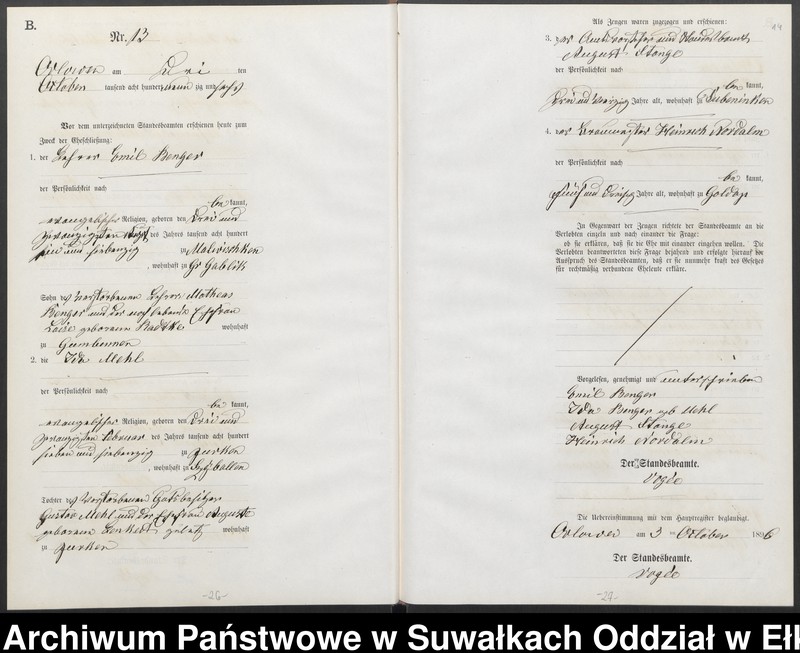 B.
Nr. 13
Orlowen am drei den
October tausend acht hundert neun zig und sechs
Vor dem unterzeichneten Standesbeamten erschienen heute zum
Zweck der Eheschließung:
1. der Lehrer Emil Benger
der Persönlichkeit nach
be kannt,
evangelischer Religion, geboren den drei und
zwanzigsten des Jahres tausend acht hundert
und siebenzig zu
, wohnhaft zu Gr Gablick
Sohn des verstorbenen Lehrers Matheas
Benger und der noch lebenden Ehefrau
geborene Radtke wohnhaft
zu Gumbinnen
2. die Ida Mehl
der Persönlichkeit nach
be kannt,
evangelischer Religion, geboren den drei und
zwanzigsten Februar des Jahres tausend acht hundert
sieben und siebenzig zu Jurken
, wohnhaft zu
Tochter des verstorbenen Gutsbesitzer
Gustav Mehl und der Ehefrau Auguste
geborene wohnhaft
zu Jurken
-26-
Als Zeugen waren zugezogen und erschienen:
3. der Amtsvorsteher und Standesbeamte
August Stange
der Persönlichkeit nach
be kannt,
drei und vierzig Jahre alt, wohnhaft zu Dubeninken
4. der Heinrich Nordalm
der Persönlichkeit nach
be kannt,
fünf und dreißig Jahre alt, wohnhaft zu Goldap
In Gegenwart der Zeugen richtete der Standesbeamte an die
Verlobten einzeln und nach einander die Frage:
ob sie erklären, daß sie die Ehe mit einander eingehen wollen. Die
Verlobten beantworteten diese Frage bejahend und erfolgte hierauf der
Ausspruch des Standesbeamten, daß er sie nunmehr kraft des Gesetzes
für rechtmäßig verbundene Eheleute erkläre.
Vorgelesen, genehmigt und unterschrieben
Emil Benger
Ida Benger geb Mehl
August Stange
Heinrich Nordalm
Der Standesbeamte.
Vogde
Die Uebereinstimmung mit dem Hauptregister beglaubigt.
Orlowen am 3 ten October 1896
Der Standesbeamte.
Vogde
-27-
Archiwum Państwowe w Suwałkach Oddział w Ełk